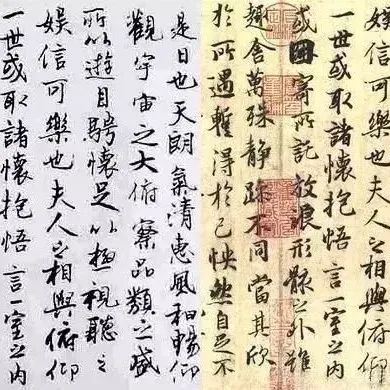 是日也天朗氣清惠風和暢仰
觀宇宙之大俯察品類之盛
所以遊目騁懷足以極視聽之
娛信可樂也夫人之相與俯仰
一世或取諸懷抱悟言一室之內
娛信可樂也夫人之相與俯仰
一世或取諸懷抱悟言一室之內
或因寄所託放浪形骸之外雖
趣舍萬殊靜躁不同當其欣
於所遇暫得於己怏然自足不